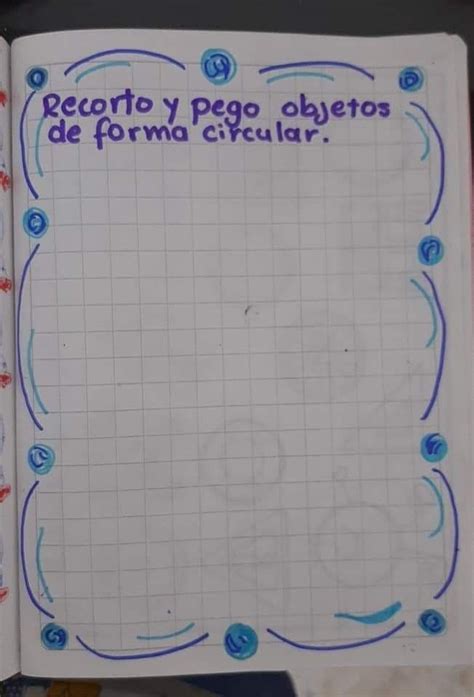 Recorto y pego objetos
de forma circular.